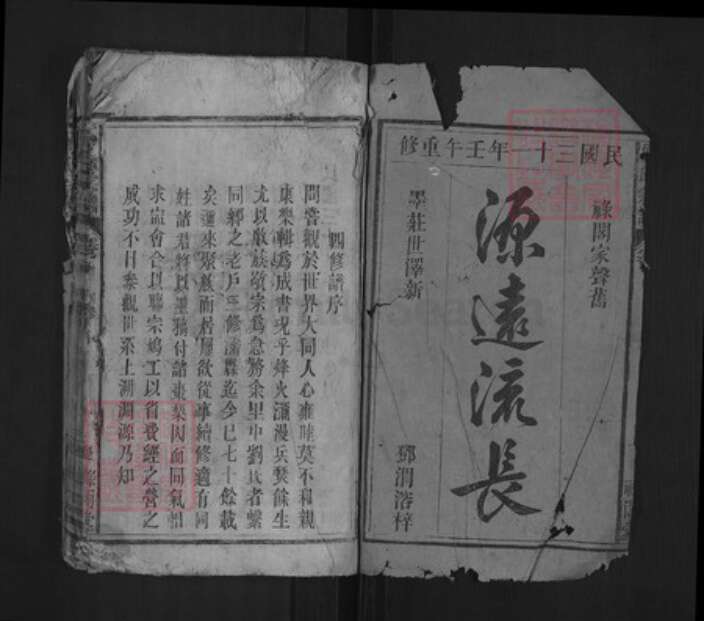 民國三十一年壬午重修
祿閣家聲舊
源遠流長
墨莊世澤新
鄧渭溶梓
四修譜序
間嘗觀於世界大同人心雍睦莫不和親
康樂輯為成書況乎烽火瀰漫兵燹餘生
尤以敬族敬宗為急務余里中劉氏者繁
同鄉之老戶三修譜牒迄今已七十餘載
矣邇來聚族而楷屢欲從事續修適有同
姓諸君將以墨牘付諸棗梨因而同氣相
求協會合以聯宗鳩工以省費經之營之
成功不日參觀世系上溯淵源乃知